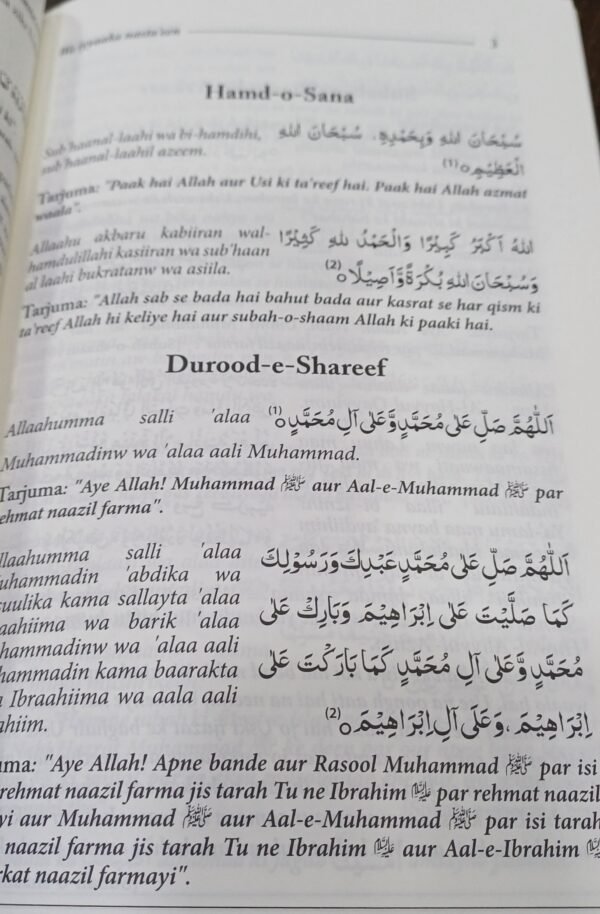 nasta'een
Hamd-o-Sana
Sub'haanal-laahi wa bi-hamdihi,
sub'haanal-laahil azeem.
سُبْحَانَ اللهِ وَبِحَمْدِهِ، سُبْحَانَ اللهِ
الْعَظِيْمِ٥(1)
Tarjuma: "Paak hai Allah aur Usi ki ta'reef hai. Paak hai Allah azmat
waala".
Allaahu akbaru kabiiran wal-
hamdulillahi kasiiran wa sub'haan
al laahi bukratanw wa asiila.
اللهُ اَكْبَرُ كَبِيْرًا وَالْحَمْدُ لِلهِ كَثِيْرًا
وَسُبْحَانَ اللهِ بُكْرَةً وَّاَصِيْلًا٥(2)
Tarjuma: "Allah sab se bada hai bahut bada aur kasrat se har qism ki
ta'reef Allah hi keliye hai aur subah-o-shaam Allah ki paaki hai.
Durood-e-Shareef
Allaahumma salli 'alaa
Muhammadinw wa 'alaa aali Muhammad.
اَللّٰهُمَّ صَلِّ عَلٰى مُحَمَّدٍ وَّعَلٰى آلِ مُحَمَّدٍ٥(1)
Tarjuma: "Aye Allah! Muhammad ﷺ aur Aal-e-Muhammad ﷺ par
rehmat naazil farma".
llaahumma salli 'alaa
uhammadin 'abdika wa
suulika kama sallayta 'alaa
aahiima wa barik 'alaa
hammadinw wa 'alaa aali
hammadin kama baarakta
Ibraahiima wa aala aali
ahiim.
اَللّٰهُمَّ صَلِّ عَلٰى مُحَمَّدٍ عَبْدِكَ وَرَسُوْلِكَ
كَمَا صَلَّيْتَ عَلٰى اِبْرَاهِيْمَ وَبَارِكْ عَلٰى
مُحَمَّدٍ وَّعَلٰى آلِ مُحَمَّدٍ كَمَا بَارَكْتَ عَلٰى
اِبْرَاهِيْمَ، وَعَلَى آلِ اِبْرَاهِيْمَ٥(2)
uma: "Aye Allah! Apne bande aur Rasool Muhammad ﷺ par isi
rehmat naazil farma jis tarah Tu ne Ibrahim عليه السلام par rehmat naazil
yi aur Muhammad ﷺ aur Aal-e-Muhammad ﷺ par isi tarah
naazil farma jis tarah Tu ne Ibrahim عليه السلام aur Aal-e-Ibrahim
rkat naazil farmayi".